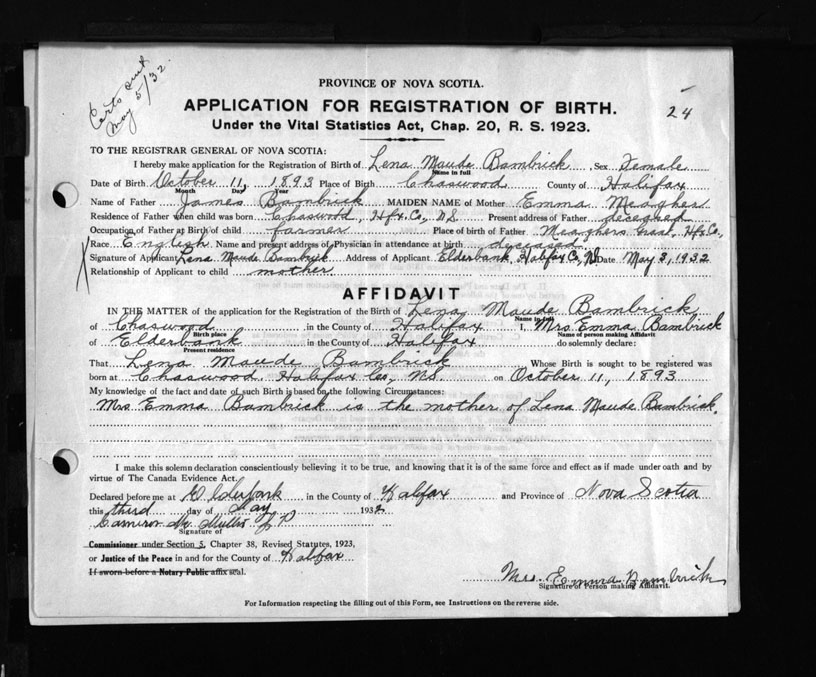 Certs sent
May 5/32.
PROVINCE OF NOVA SCOTIA.
APPLICATION FOR REGISTRATION OF BIRTH.
24
Under the Vital Statistics Act, Chap. 20, R. S. 1923.
TO THE REGISTRAR GENERAL OF NOVA SCOTIA:
I hereby make application for the Registration of Birth of Lena Maude Bambrick Sex Female
Name in full
Date of Birth October 11, 1893 Place of Birth Chaswood County of Halifax
Month Day Year
Name of Father James Bambrick MAIDEN NAME of Mother Emma Meagher
Residence of Father when child was born Chaswood, Hfx. Co, N.S. Present address of Father deceased
Occupation of Father at Birth of child farmer Place of birth of Father Meaghers Grant, Hfx Co,
Race English Name and present address of Physician in attendance at birth deceased
Signature of Applicant Lena Maude Bambrick Address of Applicant Elderbank, Halifax Co, N.S. Date May 3, 1932
Relationship of Applicant to child mother
AFFIDAVIT
IN THE MATTER of the application for the Registration of the Birth of Lena Maude Bambrick
Name in full
of Chaswood in the County of Halifax I, Mrs. Emma Bambrick
Birth place Name of person making Affidavit
of Elderbank in the County of Halifax do solemnly declare:
Present residence
That Lena Maude Bambrick Whose Birth is sought to be registered was
born at Chaswood, Halifax Co, N.S. on October 11, 1893
My knowledge of the fact and date of such Birth is based on the following Circumstances:
Mrs Emma Bambrick is the mother of Lena Maude Bambrick.
I make this solemn declaration conscientiously believing it to be true, and knowing that it is of the same force and effect as if made under oath and by
virtue of The Canada Evidence Act.
Declared before me at Elderbank in the County of Halifax and Province of Nova Scotia
this third day of May 1932
Cameron J P
Signature of
Commissioner under Section 5, Chapter 38, Revised Statutes, 1923,
or Justice of the Peace in and for the County of Halifax
If sworn before a Notary Public affix seal.
Mrs. Emma Bambrick
Signature of Person making Affidavit.
For Information respecting the filling out of this Form, see Instructions on the reverse side.